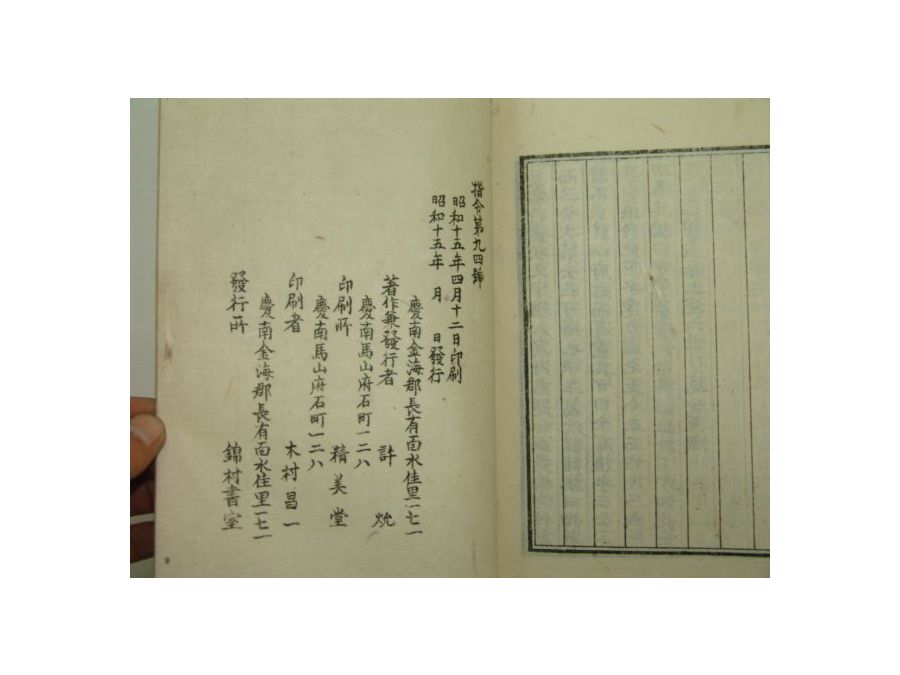 指令第九四號
昭和十五年四月十二日印刷
昭和十五年 月 日發行
慶南金海郡長有面水佳里一七一
著作兼發行者 許 炊
慶南馬山府石町一二八
印刷所 精美堂
慶南馬山府石町一二八
印刷者 木村昌一
慶南金海郡長有面水佳里一七一
發行所 錦村書室